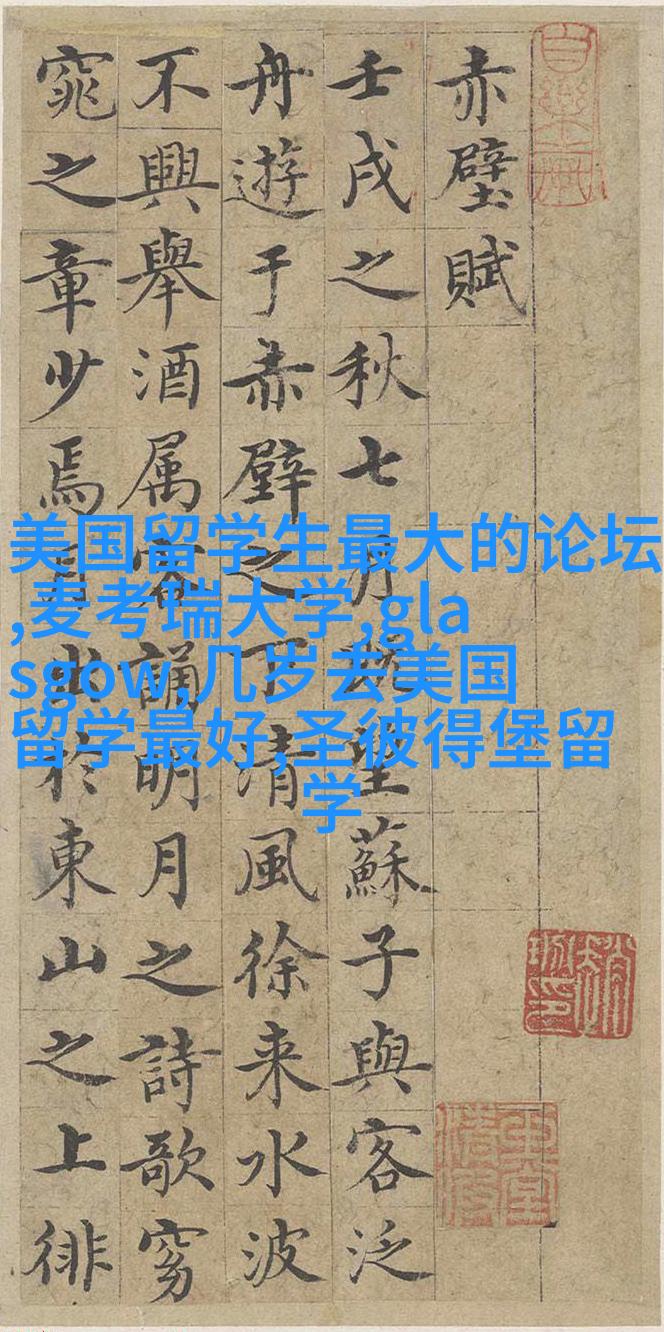 赤壁賦
壬戌之秋七月既望蘇子與客泛
舟遊于赤壁之下清風徐来水波
不興舉酒属客誦明月之詩歌窈
窕之章少焉月出於東山之上徘
美国留学生最大的论坛
,麦考瑞大学,gla
sgow,几岁去美国
留学最好,圣彼得堡留
学